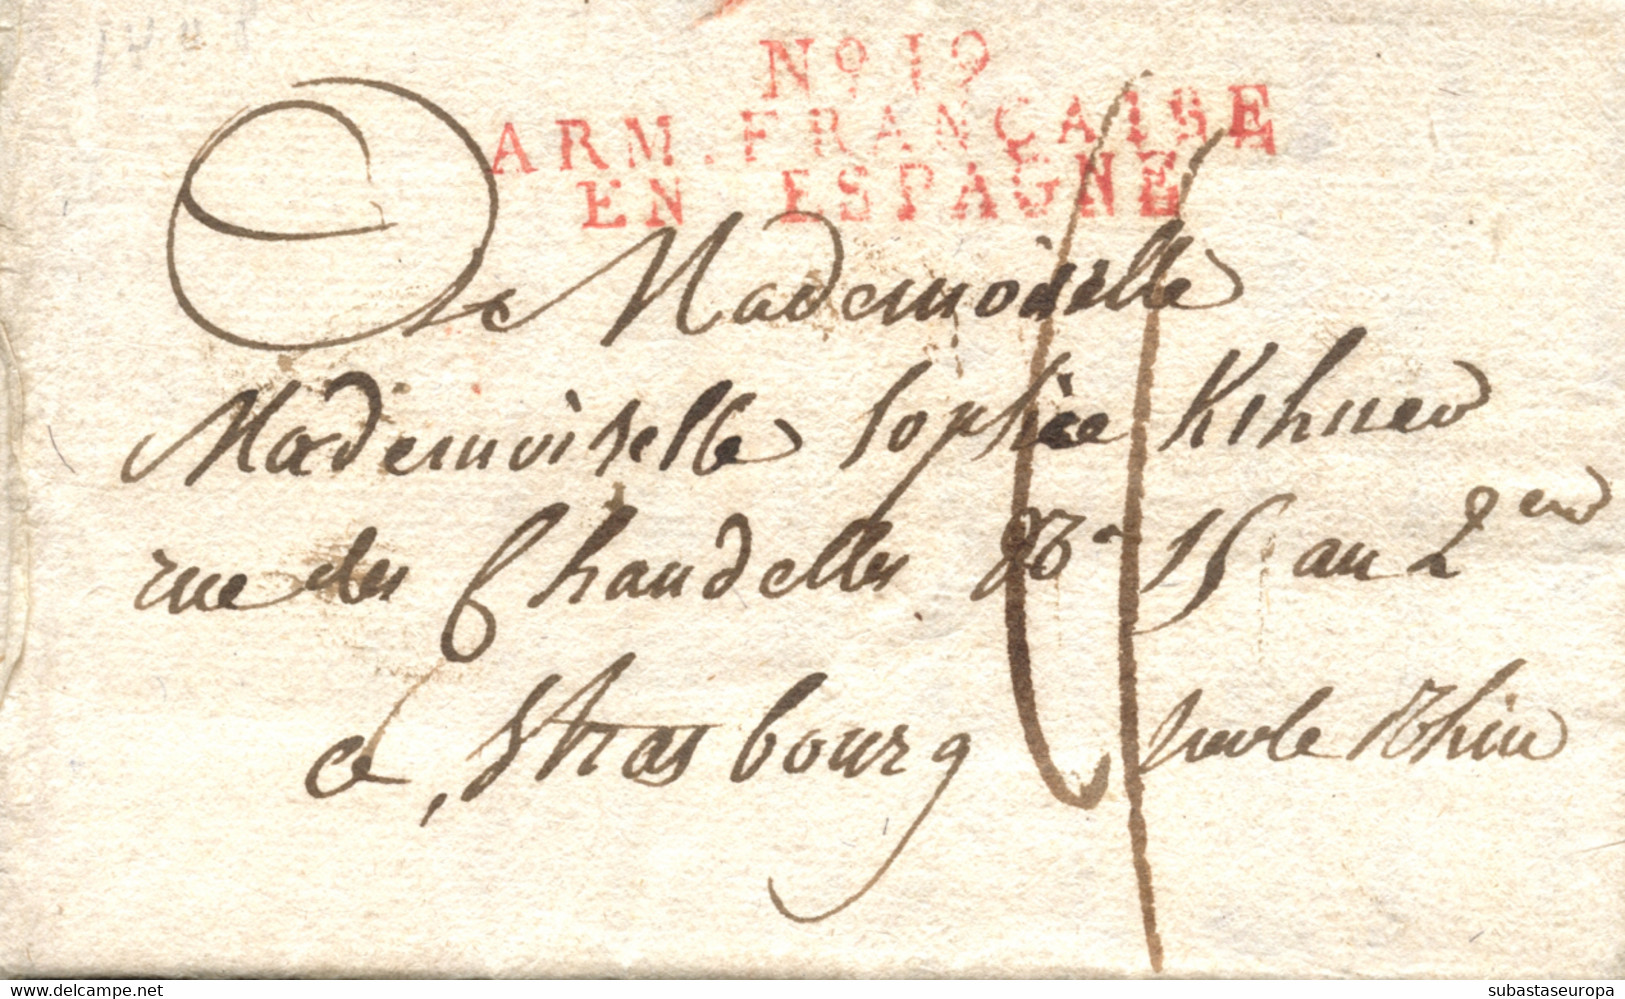 No 19
ARM. FRANÇAISE
EN ESPAGNE
Mademoiselle
Mademoiselle Sophie Kihner
rue des Chandelles No 15 au 2
a Strasbourg le Rhin
www.delcampe.net
subastaseuropa